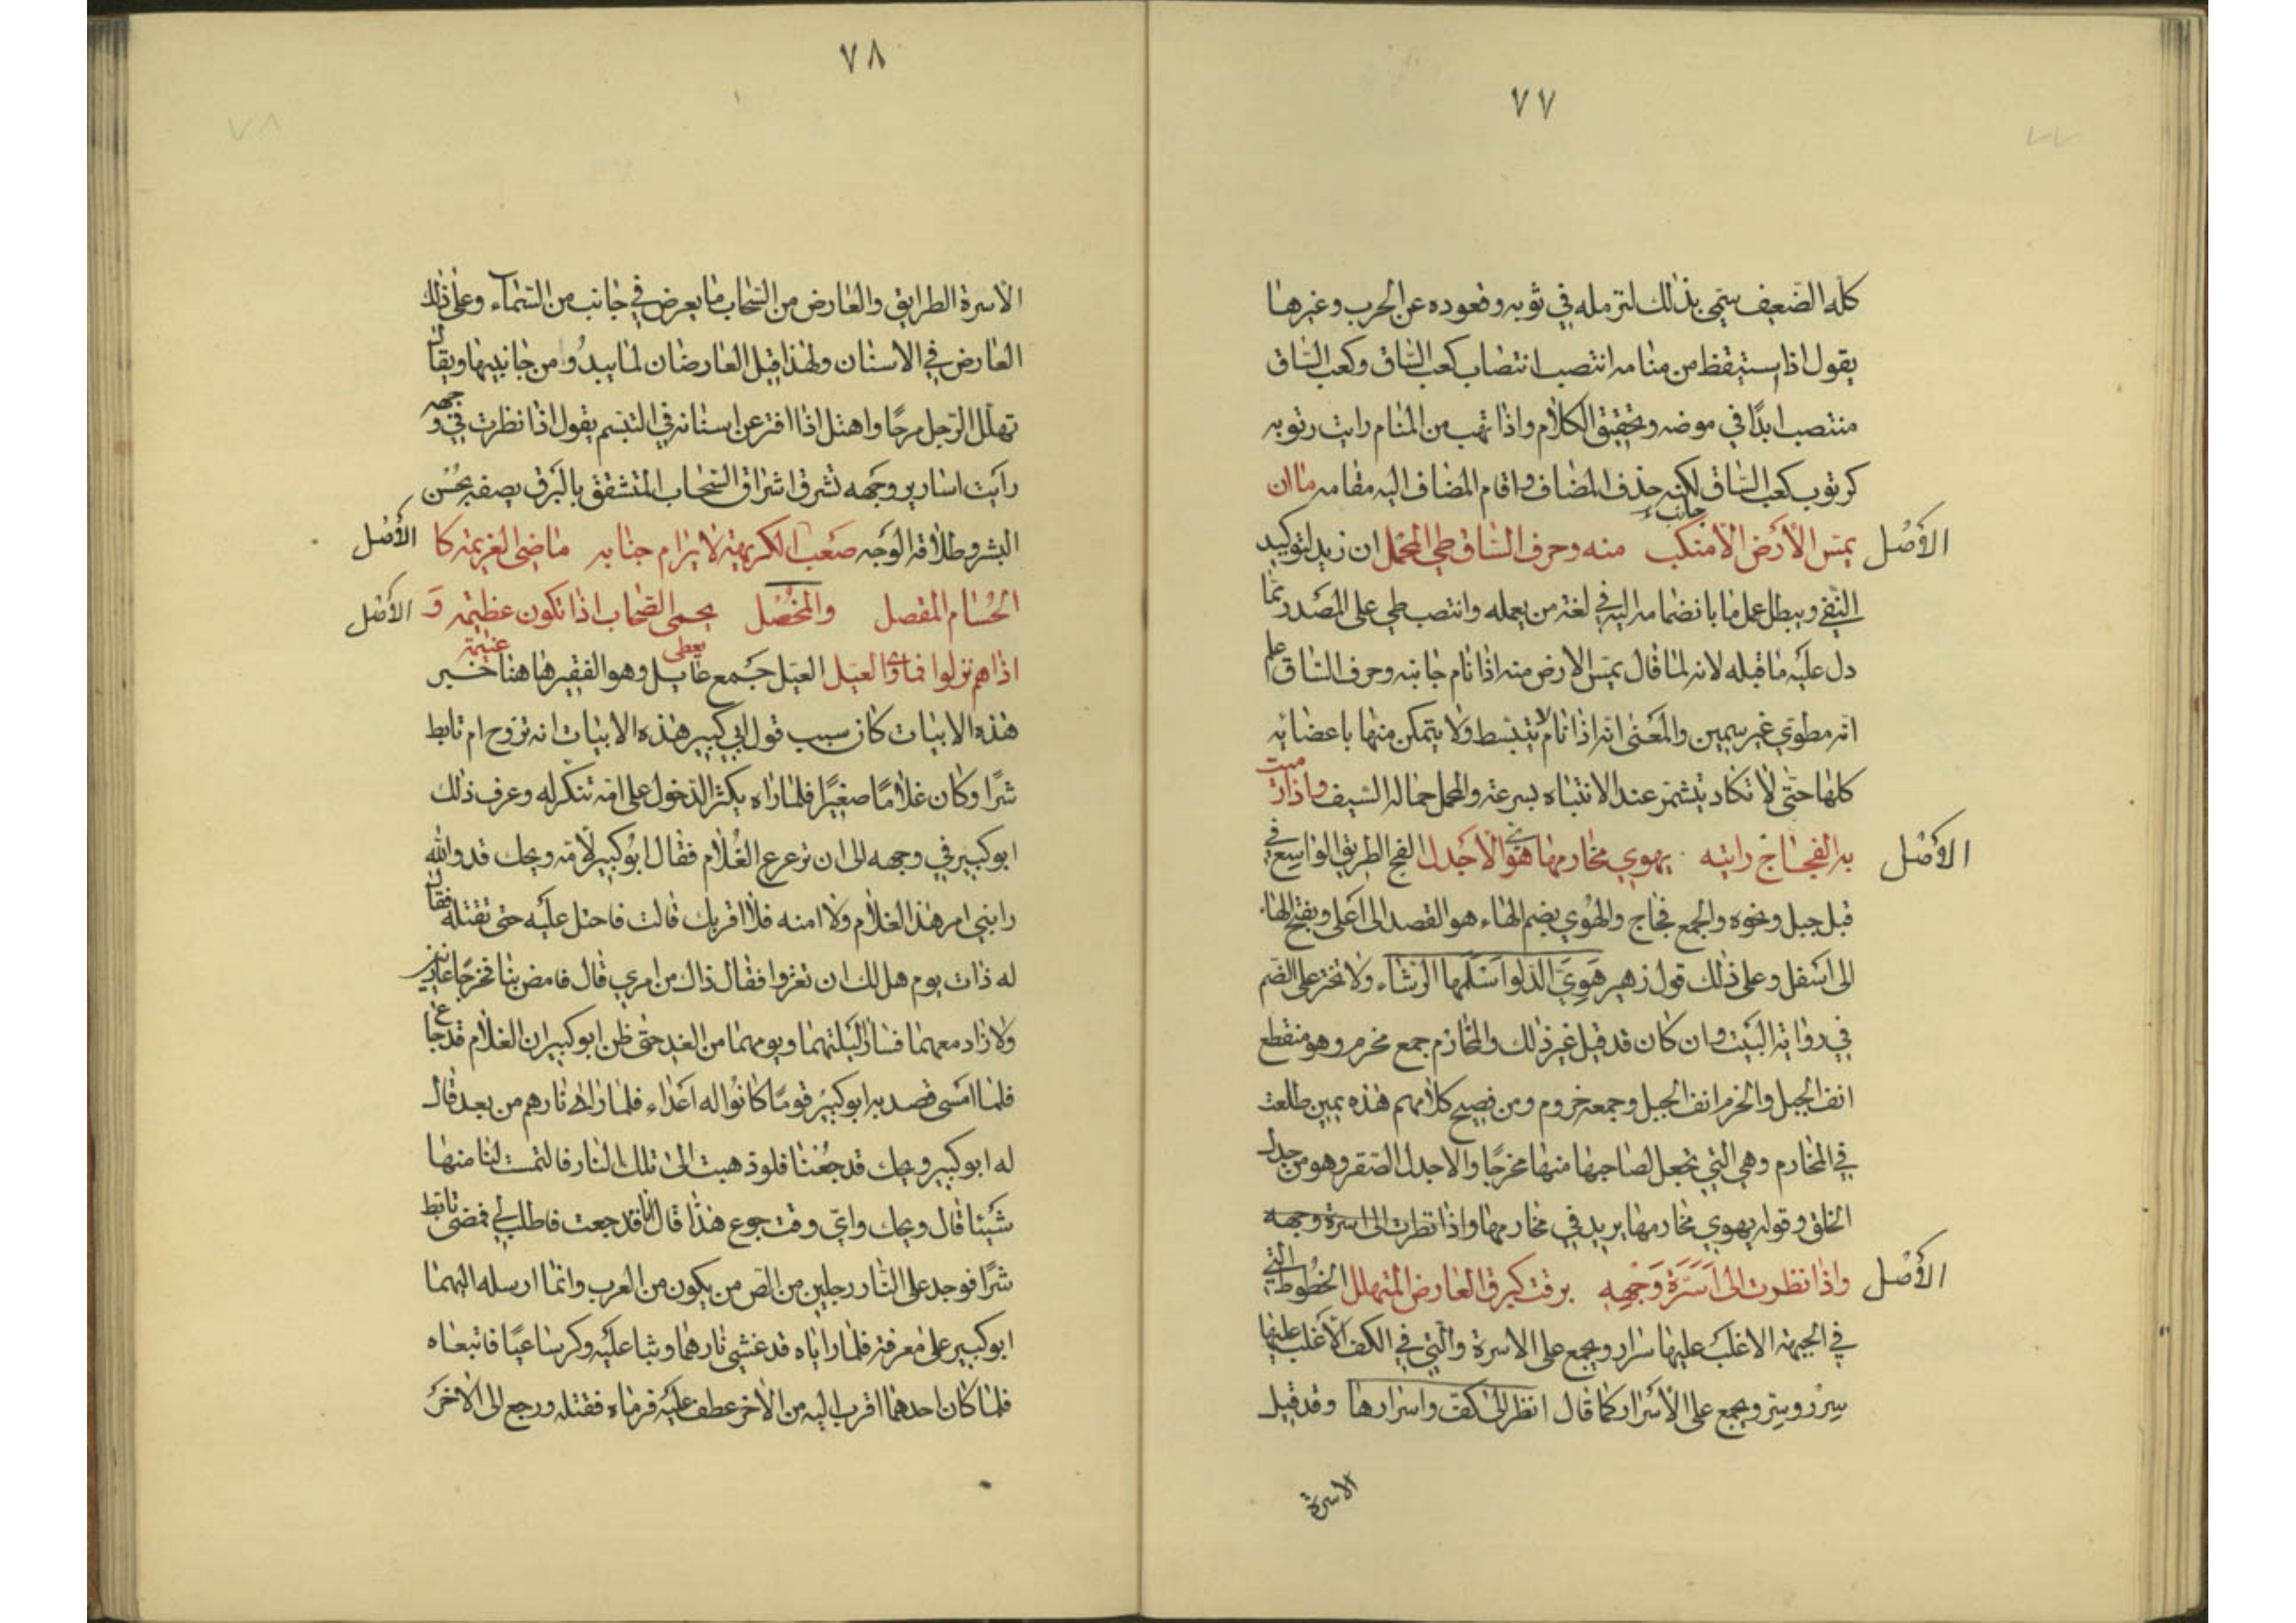 ٧٧
كله الضعيف سمي بذلك لتزمله في ثوبه وقعوده عن الحرب وغيرها
يقول اذا يستيقظ من منامه انتصب انتصاب كعب الساق وكعب الساق
منتصب ابدًا في موضه وتحقيق الكلام واذا تهب من المنام رايت رتوبه
كرتوب كعب الساق لكنه حذف المضاف واقام المضاف اليه مقامه ما ان
الأصل يمس الأرض الا منكب جانب منه وحرف الساق طي المحمل ان زيد لتوكيد
النفي ويبطل عمل ما بانضمامه اليه في لغة من يعمله وانتصب طي على المصدر بما
دل عليه ما قبله لانه لما قال يمس الارض منه اذا نام جانبه وحرف الساق علم
انه مطوي غير سمين والمعنى انه اذا نام لا يتبسط ولا يتمكن منها باعضائه
كلها حتى لا تكاد يتشمر عند الانتباه بسرعة والمحمل حمالة السيف واذا رميت
الأصل به الفجاج رايته يهوي مخارمها هوي الأجدل الفج الطريق الواسع في
قبل جبل ونحوه والجمع فجاج والهوي بضم الهاء هو القصد الى اعلى وبفتح الهاء
الى اسفل وعلى ذلك قول زهير هوي الدلو اسلمها الرشاء ولا تختر على الضم
في رواية البيت وان كان قد قيل غير ذلك والمخارم جمع مخرم وهو منقطع
انف الجبل والخرم انف الجبل وجمعه خروم ومن فصيح كلامهم هذه يمين طلعت
في المخارم وهي التي تجعل لصاحبها منها مخرجًا والاجدل الصقر وهو من جدل
الخلق وقوله يهوي مخارمها يريد في مخارمها واذا نظرت الى اسرة وجهه
الأصل واذا نظرت الى اسرة وجهه برقت كبرق العارض المتهلل الخطوط التي
في الجبهة الاغلب عليها سرار ويجمع على الاسرة والتي في الكف الاغلب عليها
سرر وسر ويجمع على الأسرار كما قال انظر الى كف واسرارها وقد قيل
الاسرة
٧٨
الأسرة الطرايق والعارض من السحاب ما يعرض في جانب من السماء وعلى ذلك
العارض في الاسنان ولهذا قيل العارضان لما يبدُوا من جانبيها ويقال
تهلل الرجل مرحًا واهتل اذا افتر عن اسنانه في التبسم يقول اذا نظرت في وجهه
رأيت اسارير وجهه تشرق اشراق السحاب المتشقق بالبرق يصفه بحسن
البشر وطلاقة الوجه صعب الكريهة لا يرام جنابه ماضي العزيمة كا الأصل
الحسام المقصل والمخصل يحمي الصحاب اذا تكون عظيمة و الأصل
اذا هم نزلوا فماوى العيل العيل جمع عايل وهو الفقير هاهنا خبر
هذه الابيات كان سبب قول ابي كبير هذه الابيات انه تزوج ام تابط
شرًا وكان غلامًا صغيرًا فلما راه يكثر الدخول على امه تنكر له وعرف ذلك
ابو كبير في وجهه الى ان ترعرع الغلام فقال ابو كبير لامه ويحك قد والله
رابني امر هذا الغلام ولا امنه فلا اقربك قالت فاحتل عليه حتى تقتله فقال
له ذات يوم هل لك ان تغزوا فقال ذاك من امري قال فامض بنا فخرجا غازيين
ولا زاد معهما فسارا ليلتهما ويومهما من الغد حتى ظن ابو كبير ان الغلام قد جاع
فلما امسى قصد به ابو كبير قومًا كانوا له اعداء فلما راى نارهم من بعد قال
له ابو كبير ويحك قد جعنا فلو ذهبت الى تلك النار فالتمست لنا منها
شيئا قال ويحك واي وقت جوع هذا قال انا قد جعت فاطلب لي فمضى تابط
شرًا فوجد على النار رجلين من الص من يكون من العرب وانما ارسله اليهما
ابو كبير على معرفة فلما راياه قد غشي نارهما وثبا عليه وكر ساعيًا فاتبعاه
فلما كان احدهما اقرب اليه من الأخر عطف عليه فرماه فقتله ورجع الى الأخر